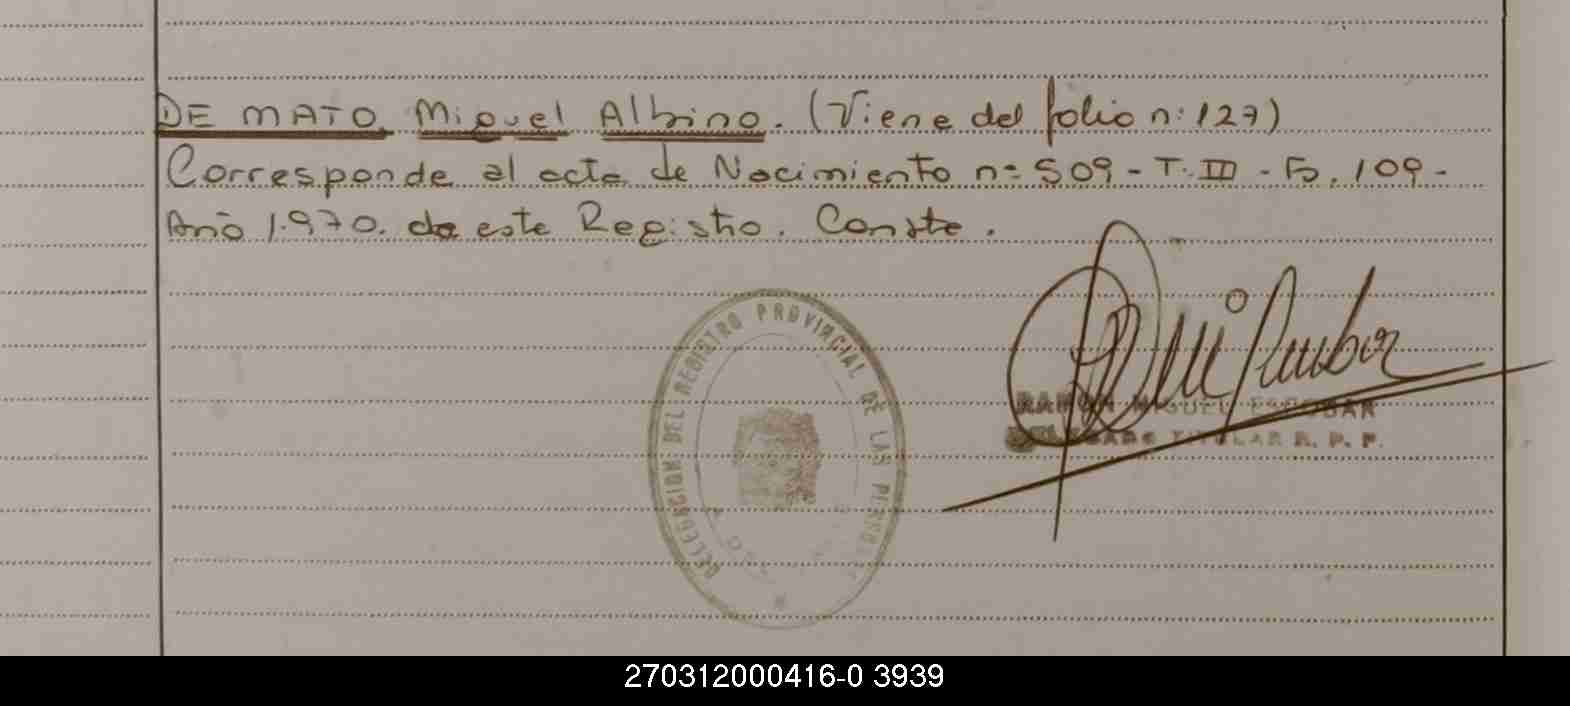 DE MATO Miguel Albino. (Viene del folio n: 127)
Corresponde al acta de Nacimiento nº 509 - T. III - Fº. 109 -
Año 1.970. de este Registro. Conste.
DELEGACION DEL REGISTRO PROVINCIAL DE LAS PERSONAS
RAMON MIGUEL ESCOBAR
DELEGADO TITULAR R. P. P.
270312000416-0 3939